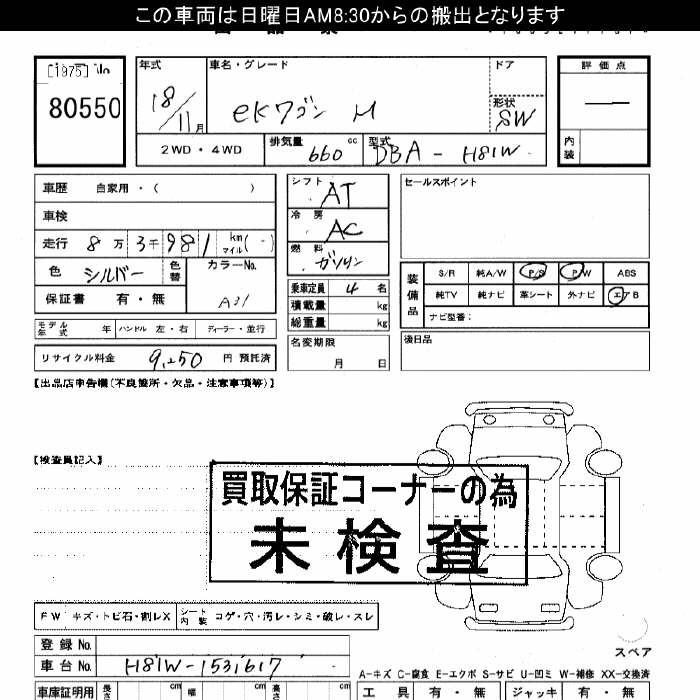 この車両は日曜日AM8:30からの搬出となります
[1975] No
80550
年式
18/11月
車名・グレード
eKワゴン M
ドア
形状
SW
評価点
内装
2WD・4WD
排気量
660 cc
型式
DBA - H81W
車歴 自家用・( )
車検
走行 8万3千981 km マイル(-)
色 シルバー 色替
カラーNo.
A31
保証書 有・無
シフト AT
冷房 AC
燃料 ガソリン
乗車定員 4名
積載量 kg
総重量 kg
セールスポイント
装備品
S/R 純A/W P/S P/W ABS
純TV 純ナビ 革シート 外ナビ エアB
ナビ型番:
モデル年式 年 ハンドル 左・右 ディーラー・並行
名変期限
月 日
後日品
リサイクル料金 9,250 円 預託済
【出品店申告欄(不良箇所・欠品・注意事項等)】
【検査員記入】
買取保証コーナーの為
未検査
FW キズ・トビ石・割レX
シート内装 コゲ・穴・汚レ・シミ・破レ・スレ
登録No.
車台No. H81W-1531617
スペア
A-キズ C-腐食 E-エクボ S-サビ U-凹ミ W-補修 XX-交換済
車庫証明用 長さ cm 幅 cm 高さ cm
工具 有・無 ジャッキ 有・無